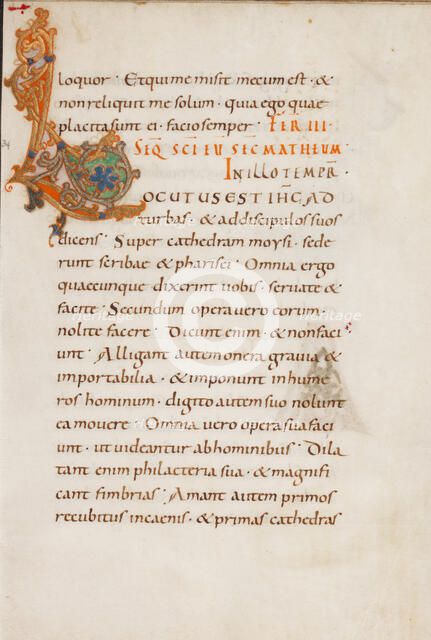 loquor · Et qui me misit mecum est · &
non reliquit me solum · quia ego quae
placita sunt ei · facio semper · FER III ·
SEQ SCI EU SEC MATHEUM ·
IN ILLO TEMPR ·
LOCUTUS EST IHC AD
turbas · & ad discipulos suos
dicens · Super cathedram moysi · sede
runt scribae & pharisei · Omnia ergo
quaecunque dixerint uobis · seruate &
facite · Secundum opera uero eorum
nolite facere · Dicunt enim · & non faci
unt · Alligant autem onera grauia &
importabilia · & imponunt in hume
ros hominum · digito autem suo nolunt
ea mouere · Omnia uero opera sua faci
unt · ut uideantur ab hominibus · Dila
tant enim philacteria sua · & magnifi
cant fimbrias · Amant autem primos
recubitus in caenis · & primas cathedras